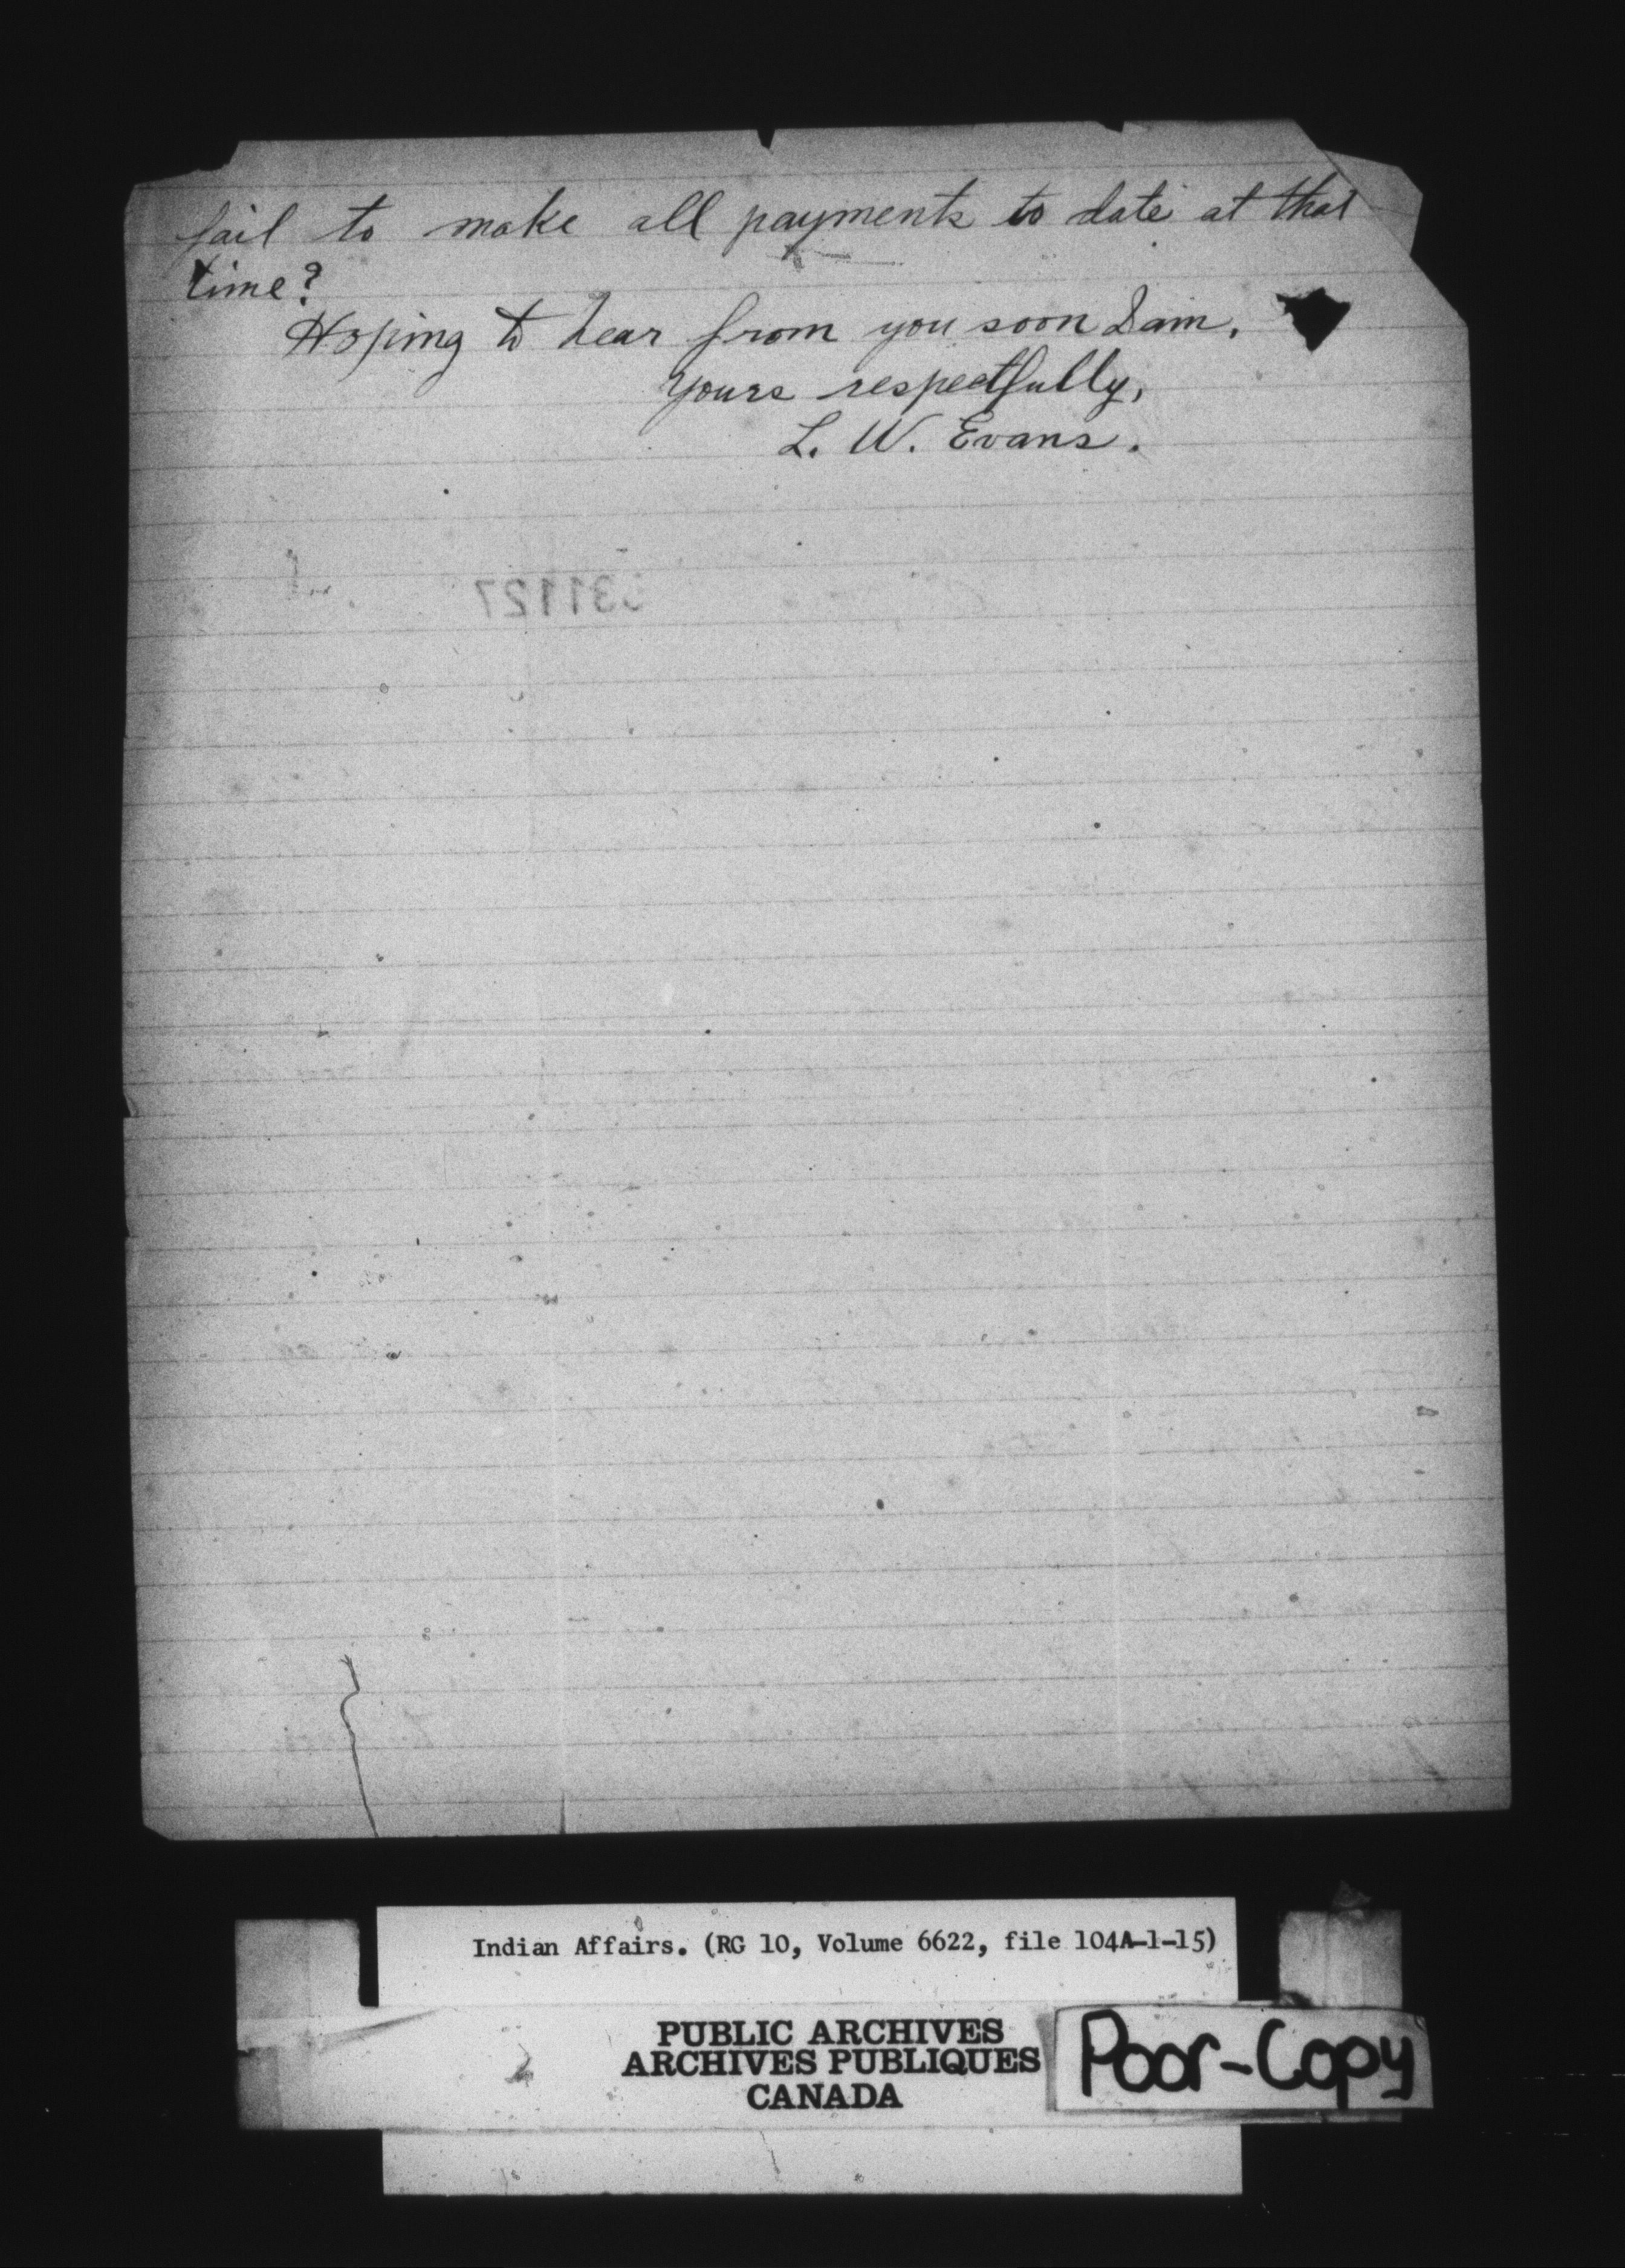 fail to make all payments to date at that
time?
Hoping to hear from you soon I am,
Yours respectfully,
L. W. Evans.
31127
Indian Affairs. (RG 10, Volume 6622, file 104A-1-15)
PUBLIC ARCHIVES
ARCHIVES PUBLIQUES
CANADA
Poor-Copy